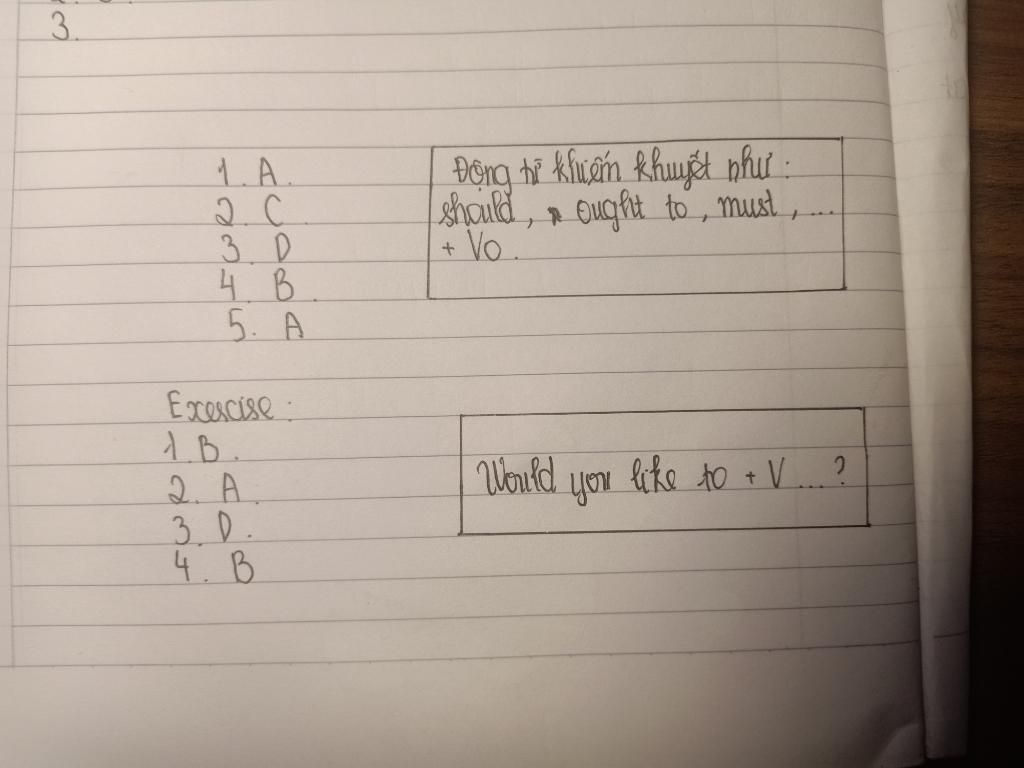 3.
1. A.
2. C
3. D
4. B.
5. A
Động từ khiếm khuyết như :
should, ought to, must, ...
+ Vo.
Exercise :
1. B.
2. A.
3. D.
4. B
Would you like to + V ... ?